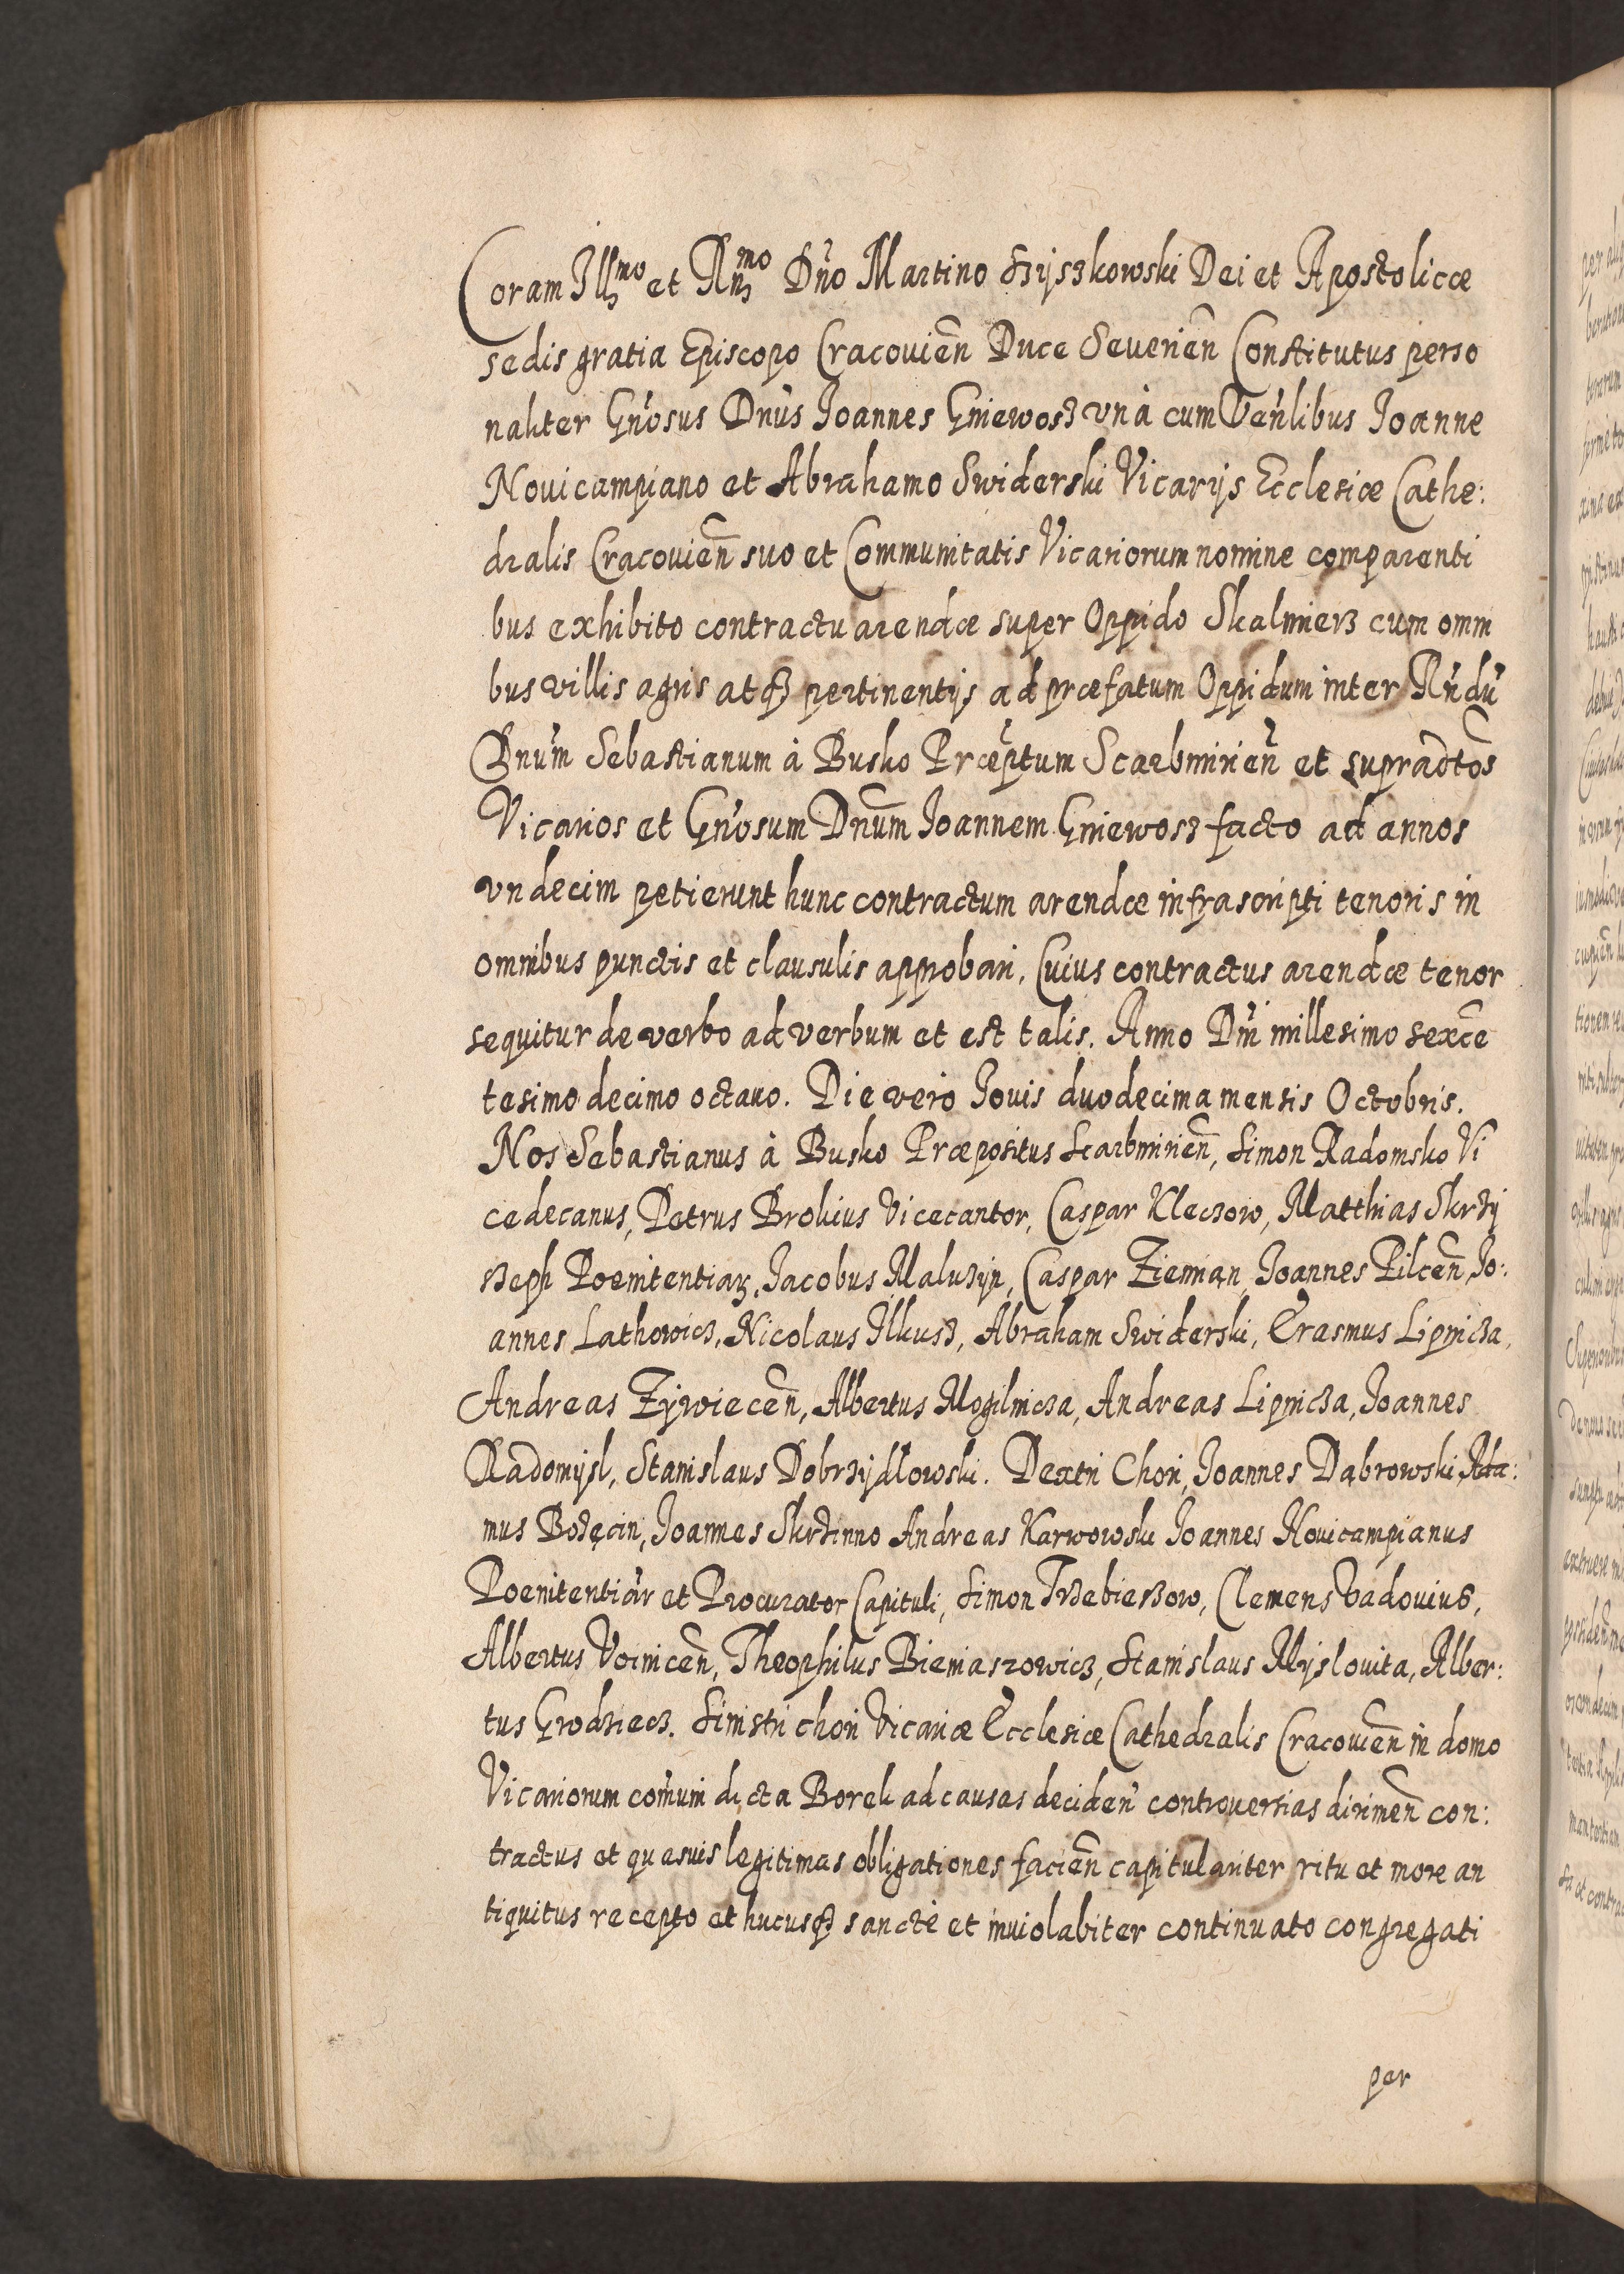 Coram Illmo et Rndmo Dño Martino Szyszkowski Dei et Apostolicæ
sedis gratia Episcopo Cracouien̄ Duce Seuerien̄ Constitutus perso
naliter Gn̄osus Dnūs Joannes Gniewosz vnà cum Ven̄libus Joanne
Nouicampiano et Abrahamo Swiderski Vicarijs Ecclesiæ Cathe:
dralis Cracouien̄ suo et Communitatis Vicariorum nomine comparenti
bus exhibito contractu arendæ super Oppido Skalmierz cum omni
bus villis agris atqȝ pertinentijs ad præfatum Oppidum inter Rn̄dū
Dnūm Sebastianum à Busko Præptum Scarbmirien̄ et supradc̄tos
Vicarios et Gn̄osum Dnūm Joannem Gniewosz facto ad annos
vndecim petierunt hunc contractum arendæ infrascripti tenoris in
omnibus punctis et clausulis approbari. Cuius contractus arendæ tenor
sequitur de verbo ad verbum et est talis. Anno Dn̄i millesimo sexcē
tesimo decimo octauo. Die vero Jouis duodecima mensis Octobris.
Nos Sebastianus à Busko Præpositus Scarbmirien̄, Simon Radomsko Vi
cedecanus, Petrus Brokius Vicecantor, Caspar Kleczow, Matthias Skrzy
szeph Poenitentiarȝ, Jacobus Maluzyn, Caspar Zieman, Joannes Pilcen̄, Jo:
annes Lathowicz, Nicolaus Ilkusz, Abraham Swiderski, Erasmus Lipnicza,
Andreas Zywiecen̄, Albertus Mogilnicza, Andreas Lipnicza, Joannes
Radomysl, Stanislaus Dobrzydlowski. Dextri Chori, Joannes Dąbrowski, Ada:
mus Bodzęcin, Joannes Skrzinno Andreas Karwowski Joannes Nouicampianus
Poenitentiār et Procurator Capituli, Simon Trzebieszow, Clemens Vadouius,
Albertus Voinicen̄, Theophilus Biemaszowicz, Stanislaus Myslouita, Alber:
tus Grodziecz. Sinistri chori Vicariæ Ecclesiæ Cathedralis Cracouien̄ in domo
Vicariorum com̄uni dicta Borek ad causas deciden̄ controuersias dirimen̄ con:
tractus et quasuis legitimas obligationes facien̄ capitulariter ritu et more an
tiquitus recepto et hucusqȝ sanctè et inuiolabiter continuato congregati
per